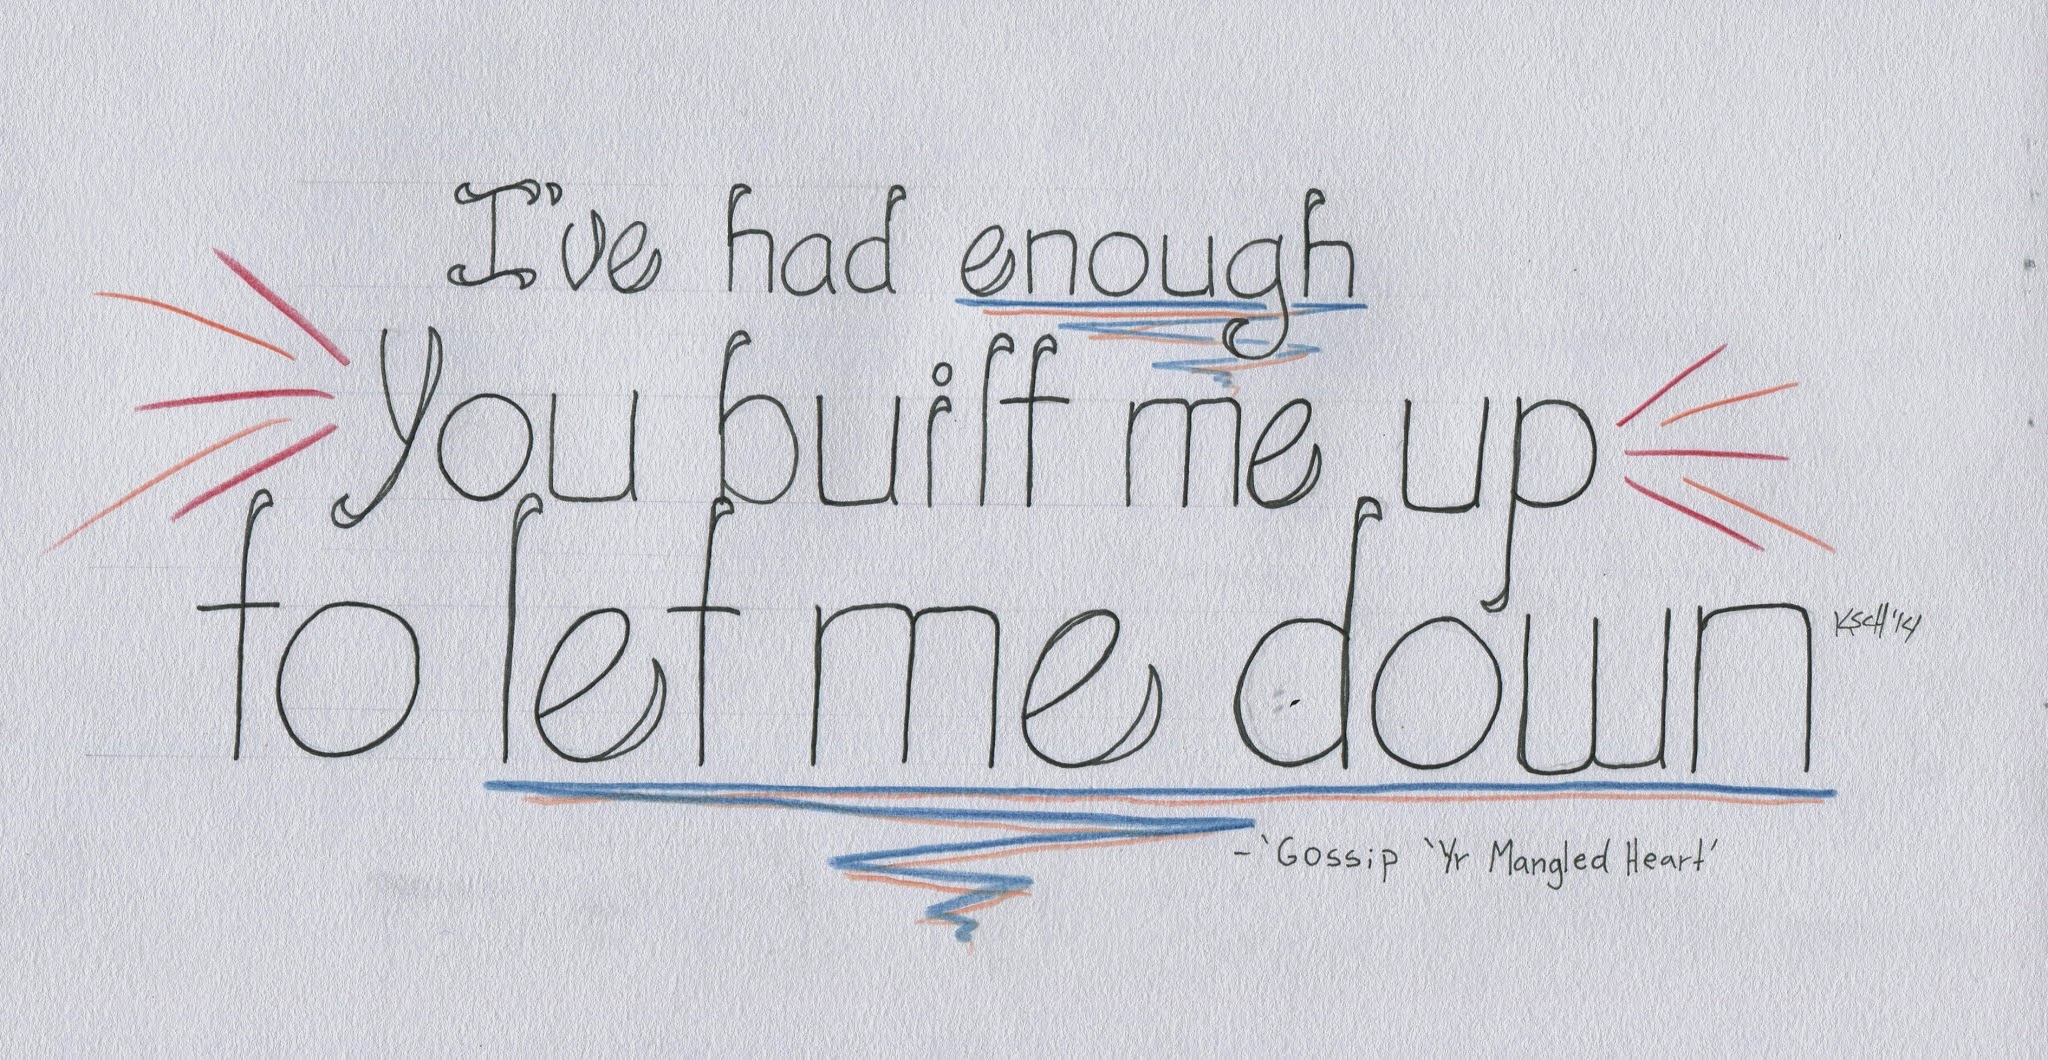 I've had enough
you built me up
to let me down
KSCH '14
- 'Gossip 'Yr Mangled Heart'